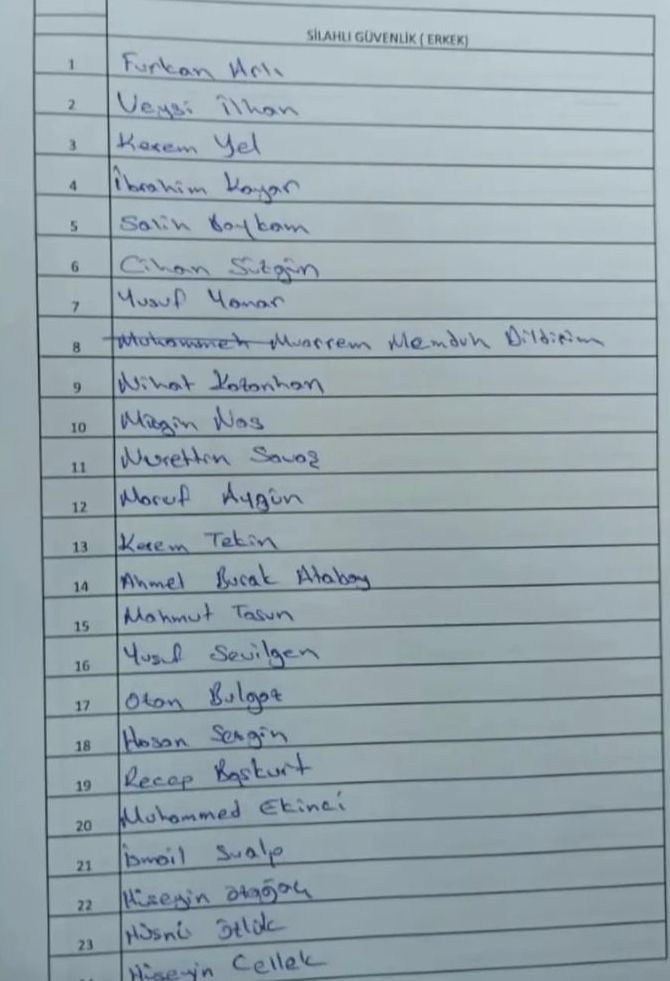 SİLAHLI GÜVENLİK ( ERKEK)
1 Furkan
2 Veysi İlhan
3 Kerem Yel
4 İbrahim Kayar
5 Salih Baykam
6 Cihan Süzgün
7 Yusuf Yanar
8 Muarrem Memduh Dildirim
9 Nihat Kozanhan
10 Mizgin Nas
11 Nurettin Savaş
12 Maruf Aygün
13 Kerem Tekin
14 Ahmet Burak Atabay
15 Mahmut Tasun
16 Yusuf Sevilgen
17 Ozan Bulgaz
18 Hasan Sezgin
19 Recep Başkurt
20 Muhammed Ekinci
21 İsmail Sualp
22 Hüseyin
23 Hüsnü
Hüseyin Cellek